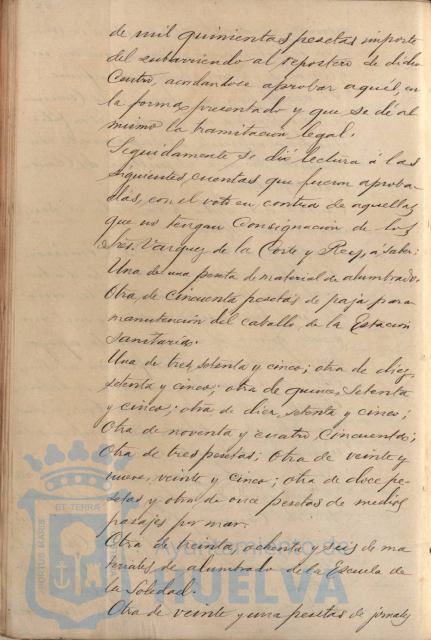 de mil quinientas pesetas importe
del subarriendo al repostero de dicho
Centro, acordandose aprobar aquél, en
la forma presentado y que se dé al
mismo la tramitacion legal.
Seguidamente se dió lectura á las
siguientes cuentas que fueron aproba-
das, con el voto en contra de aquellas
que no tengan Consignacion de los
Sres. Vazquez de la Corte y Rey, á saber:
Una de una peseta de material de alumbrado.
Otra de cincuenta pesetas de paja para
manutención del caballo de la Estacion
Sanitaria.
Una de tres, setenta y cinco; otra de diez,
setenta y cinco; otra de quince, setenta
y cinco; otra de diez, setenta y cinco;
Otra de noventa y cuatro cincuenta;
Otra de tres pesetas; Otra de veinte y
nueve, veinte y cinco; otra de doce pe-
setas y otra de once pesetas de medios
pasajes por mar.
Otra de treinta, ochenta y seis de ma-
teriales de alumbrado de la Escuela de
la Soledad.
Otra de veinte y una pesetas de jornales
PORTUS MARIS ET TERRÆ
Ayuntamiento de
HUELVA